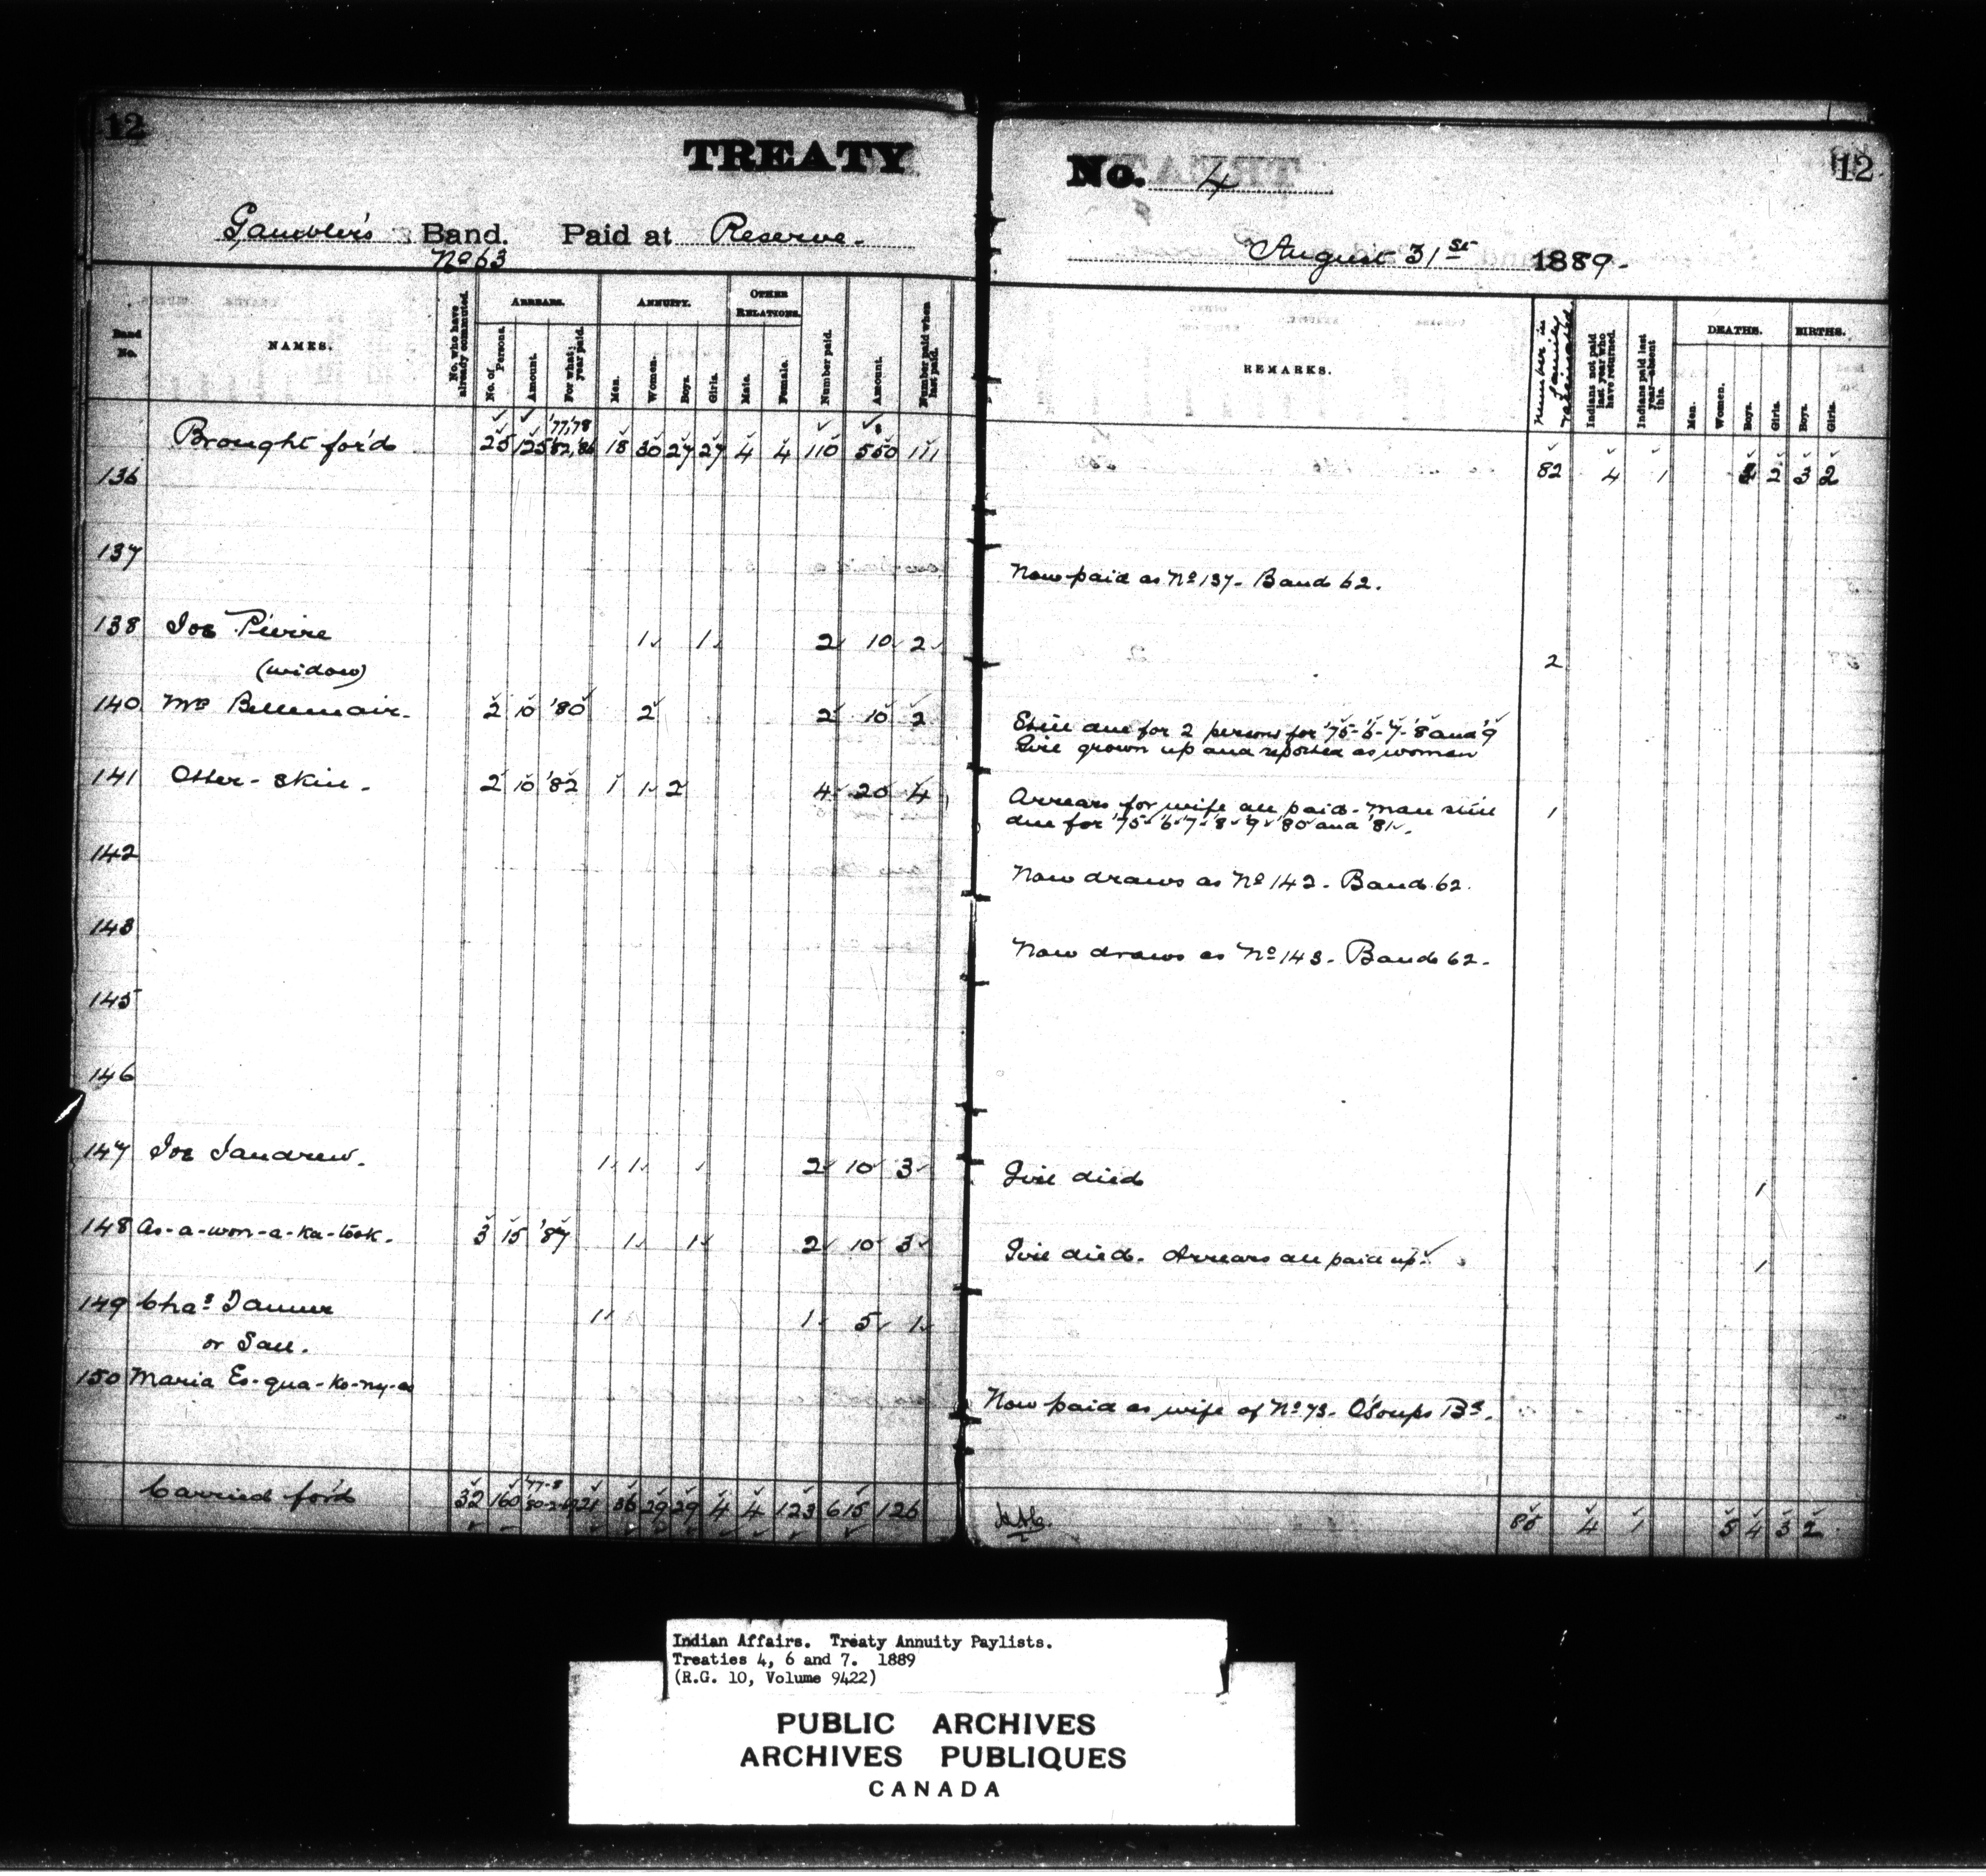 12
TREATY
Gambler's Band. Paid at Reserve.
No 63
Band No.
NAMES.
No. who have already commuted.
ARREARS.
No. of Persons.
Amount.
For what year paid.
ANNUITY.
Men.
Women.
Boys.
Girls.
OTHER RELATIONS.
Male.
Female.
Number paid.
Amount.
Number paid when last paid.
Brought for'd 25 125 '77,'78 '82,'86 18 30 27 27 4 4 110 550 111
136
137
138 Joe Pierre 1 1 2 10 2
(widow)
140 Mrs Bellemair. 2 10 '80 2 2 10 2
141 Otter-skin. 2 10 '82 1 1 2 4 20 4
142
143
145
146
147 Joe Tandrew. 1 1 2 10 3
148 As-a-won-a-ka-took. 3 15 '87 1 1 2 10 3
149 Chas Tanner 1 1 5 1
or Sau.
150 Maria Es-qua-ko-ny-as
Carried for'd 32 160 '77-8 21 36 29 29 4 4 123 615 126
No. 4
12
August 31st 1889.
REMARKS.
Number in family
Indians not paid last year who have returned.
Indians paid last year—absent this.
DEATHS.
Men.
Women.
Boys.
Girls.
BIRTHS.
Boys.
Girls.
82 4 1 2 3 2
Now paid as No 137. Band 62.
2
Still due for 2 persons for '75-6-7-8 and '9
Girl grown up and reported as woman
Arrears for wife all paid. Man still 1
due for '75-'6-'7-'8-'9-'80 and '81.
Now draws as No 142. Band 62.
Now draws as No 143. Band 62.
Girl died 1
Girl died. Arrears all paid up. 1
Now paid as wife of No 73. O'Soups Bd.
85 4 1 5 4 3 2
Indian Affairs. Treaty Annuity Paylists.
Treaties 4, 6 and 7. 1889
(R.G. 10, Volume 9422)
PUBLIC ARCHIVES
ARCHIVES PUBLIQUES
CANADA